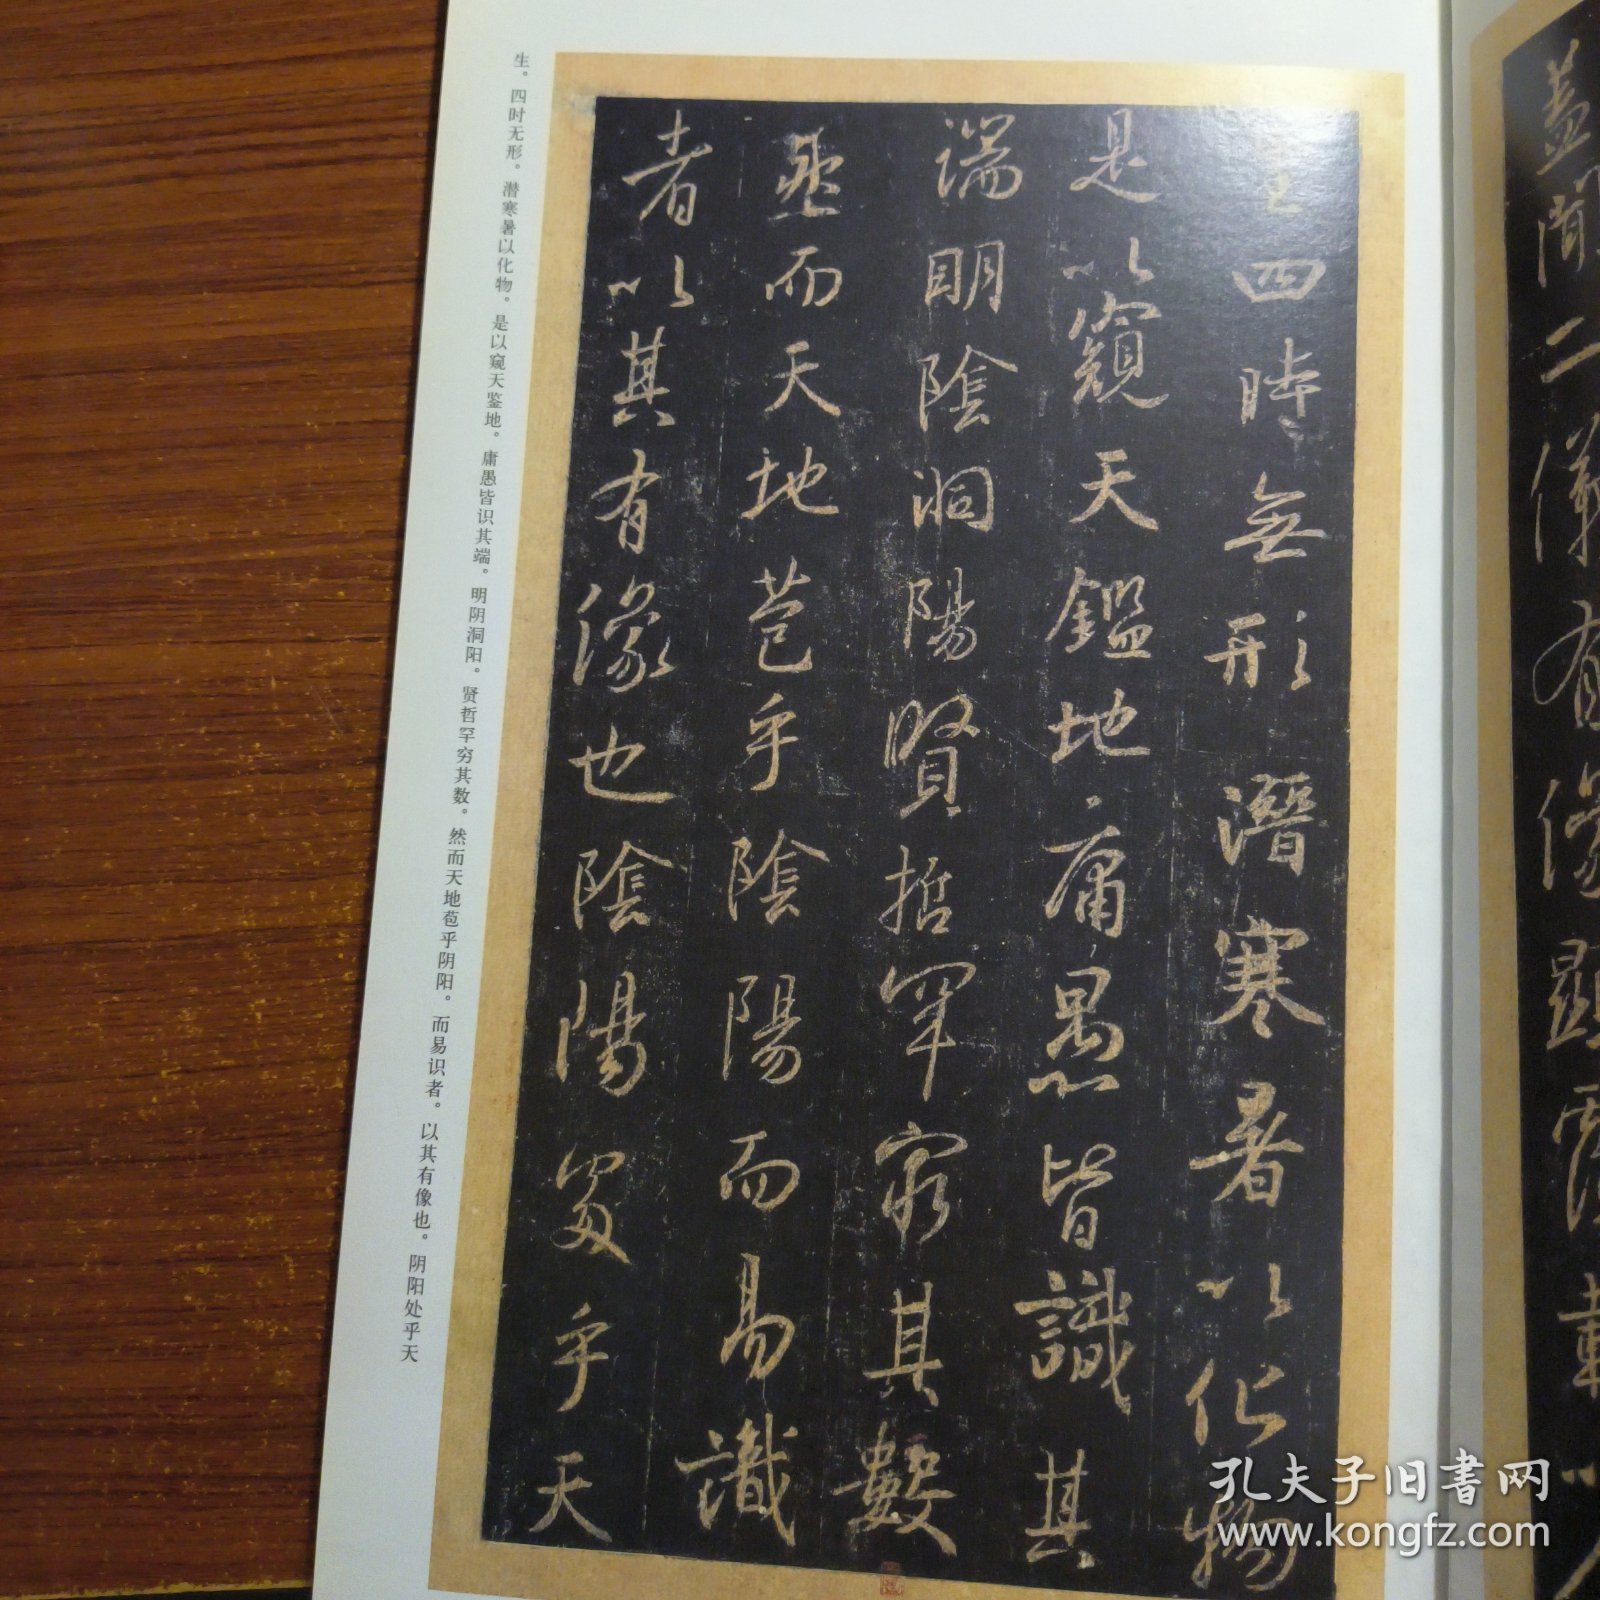 蓋聞二儀有像顯覆載以
生四時無形潛寒暑以化物
是以窺天鑑地庸愚皆識其
端明陰洞陽賢哲罕窮其數
然而天地苞乎陰陽而易識
者以其有像也陰陽處乎天
生。四时无形。潜寒暑以化物。是以窥天鉴地。庸愚皆识其端。明阴洞阳。贤哲罕穷其数。然而天地苞乎阴阳。而易识者。以其有像也。阴阳处乎天
孔夫子旧书网
www.kongfz.com